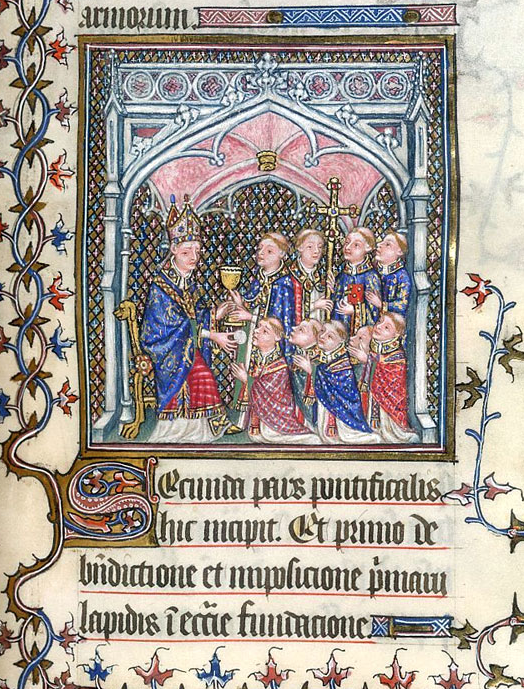 armorum.
Secunda pars pontificalis
hic incipit. Et primo de
bñdictione et imposicione p̃marii
lapidis ĩ eccĩe fundacione